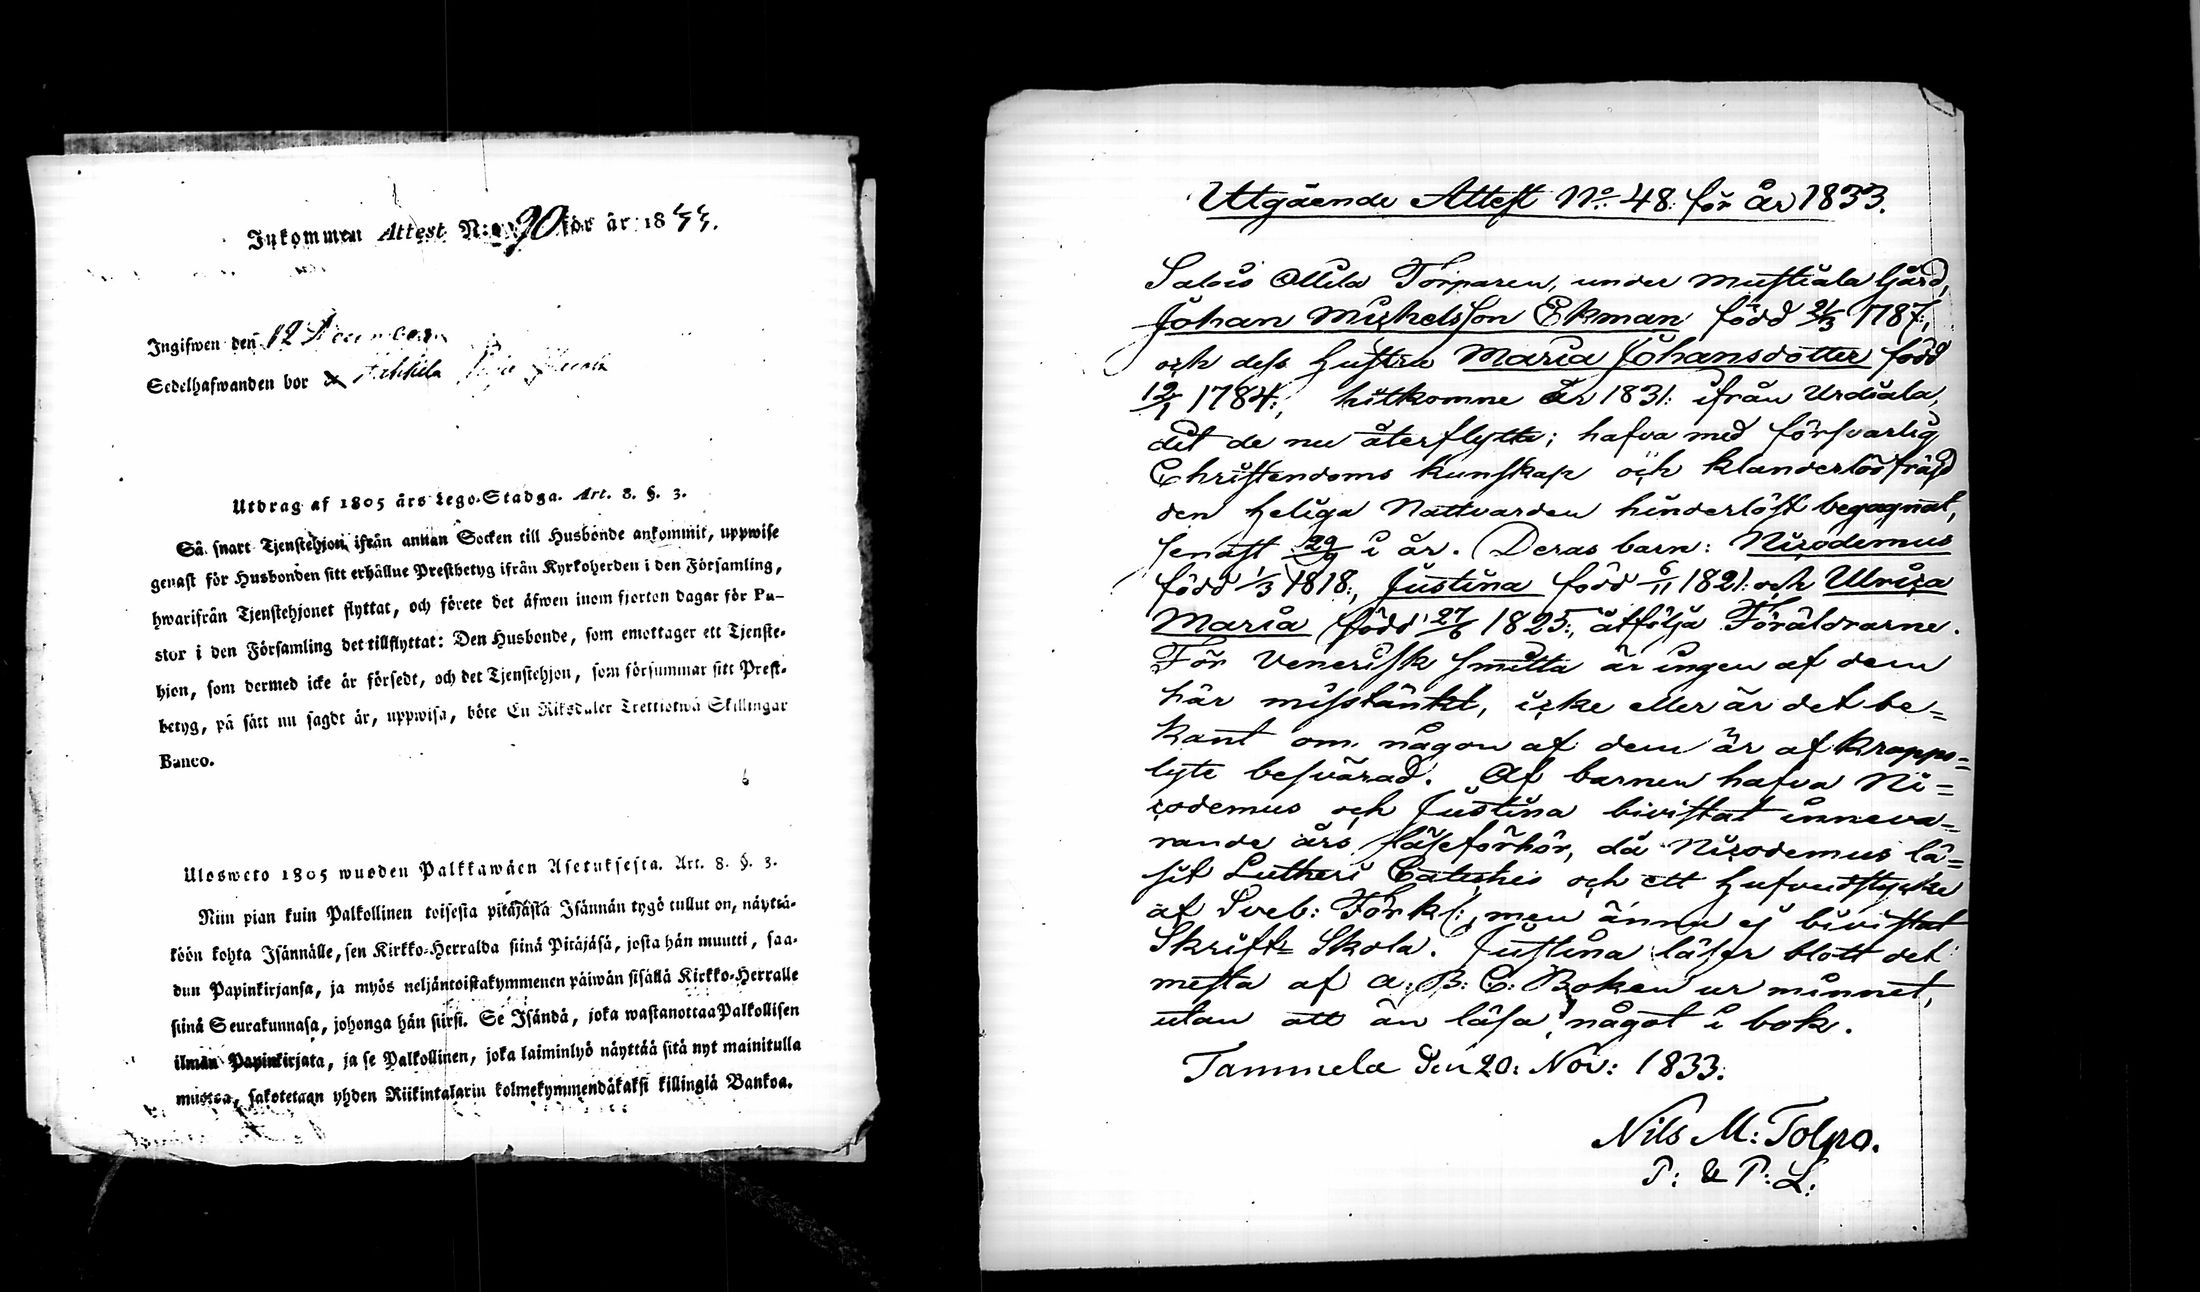 Inkommen Attest N:o 90 för år 1833.
Ingifwen den 12 December
Sedelhafwanden bor
Utdrag af 1805 års Lego-Stadga. Art. 8. §. 3.
Så snart Tjenstehjon ifrån annan Socken till Husbonde ankommit, uppwise
genast för Husbonden sitt erhållne Prestbetyg ifrån Kyrkoherden i den Församling,
hwarifrån Tjenstehjonet flyttat, och förete det äfwen inom fjorton dagar för Pa-
stor i den Församling det tillflyttat: Den Husbonde, som emottager ett Tjenste-
hjon, som dermed icke är försedt, och det Tjenstehjon, som försummar sitt Prest-
betyg, på sätt nu sagdt är, uppwisa, böte En Riksdaler Trettiotwå Skillingar
Banco.
Ulosweto 1805 wuoden Palkkawäen Asetuksesta. Art. 8. §. 3.
Niin pian kuin Palkollinen toisesta pitäjästä Isännän tygö tullut on, näyttä-
köön kohta Isännälle, sen Kirkko-Herralda siinä Pitäjäsä, josta hän muutti, saa-
dun Papinkirjansa, ja myös neljäntoistakymmenen päiwän sisällä Kirkko-Herralle
siinä Seurakunnasa, johonga hän siirsi. Se Isändä, joka wastanottaa Palkollisen
ilman Papinkirjata, ja se Palkollinen, joka laiminlyö näyttää sitä nyt mainitulla
muotoa, sakotetaan yhden Riikintalarin kolmekymmendäkaksi killingiä Bankoa.
Utgående Attest No. 48: för år 1833.
Salois Ollila Torparen, under Mustiala Gård,
Johan Michelsson Ekman född 21/3 1787,
och dess Hustru Maria Johansdotter född
12/1 1784:, hitkomne år 1831: ifrån Urdiala,
dit de nu återflytta; hafva med försvarlig
Christendoms kunskap och klanderlös fräjd
den Heliga Nattvarden hinderlöst begagnat,
senast 29/9 i år. Deras barn: Nicodemus
född 1/3 1818:, Justina född 6/11 1821: och Ulrica
Maria född 27/6 1825:, åtfölja Föräldrarne.
För Venerisk smitta är ingen af dem
här misstänkt, icke eller är det be=
kant om någon af dem är af Kropps=
lyte besvärad. Af barnen hafva Ni=
codemus och Justina bivistat inneva=
rande års Läseförhör, då Nicodemus lä=
sit Lutheri Cateches och ett Hufvudstycke
af Sveb: Förkl:, men ännu ej bivistat
Skrift= Skola. Justina läser blott det
mesta af A: B: C: Boken ur minnet,
utan att än läsa något i bok.
Tammela den 20: Nov: 1833.
Nils M: Tolpo.
P: & P: L: